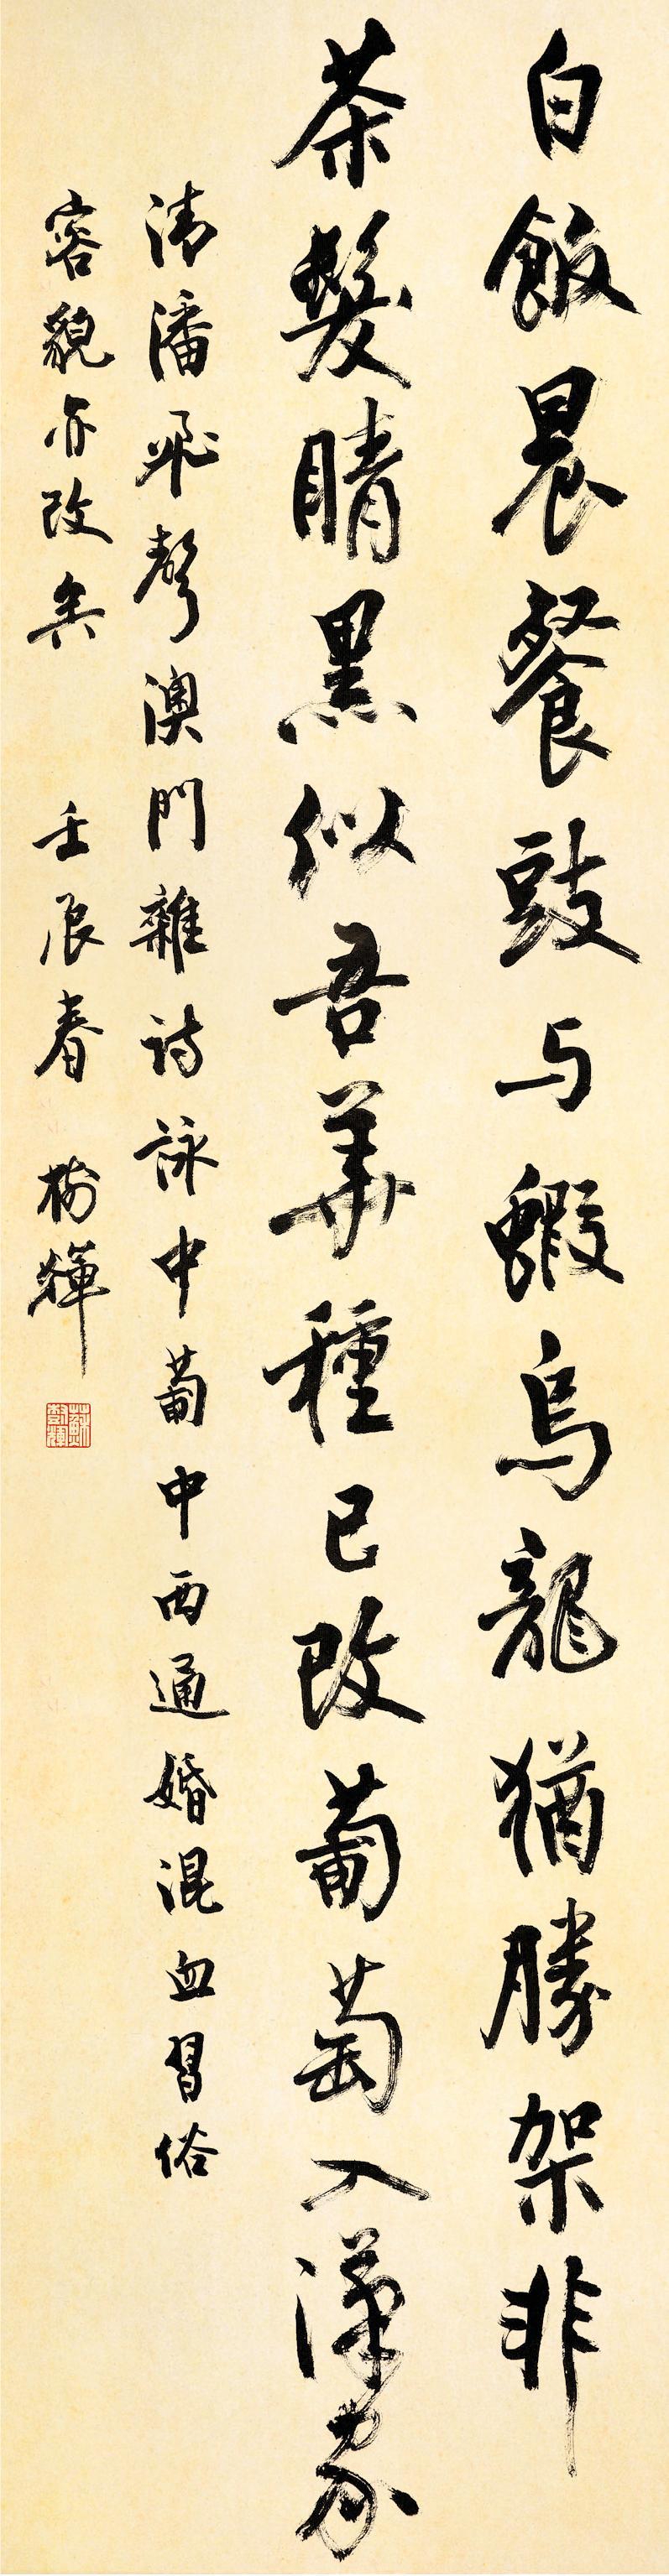 白飯晨餐豉与蝦烏龍猶勝架非
茶髮睛黑似吾華種已改葡萄入漢家
清潘飛聲澳門雜詩詠中葡中西通婚混血習俗
容貌亦改矣 壬辰春 樹輝
蘇樹輝